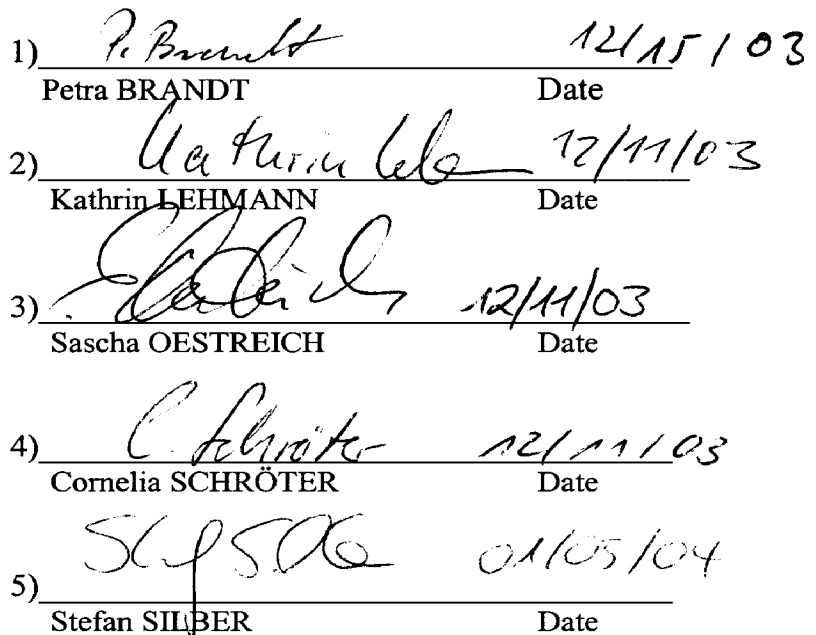 1) P. Brandt 12/15/03
Petra BRANDT Date
2) Kathrin 12/11/03
Kathrin LEHMANN Date
3) 12/11/03
Sascha OESTREICH Date
4) C. Schröter 12/11/03
Cornelia SCHRÖTER Date
5) 01/05/04
Stefan SILBER Date